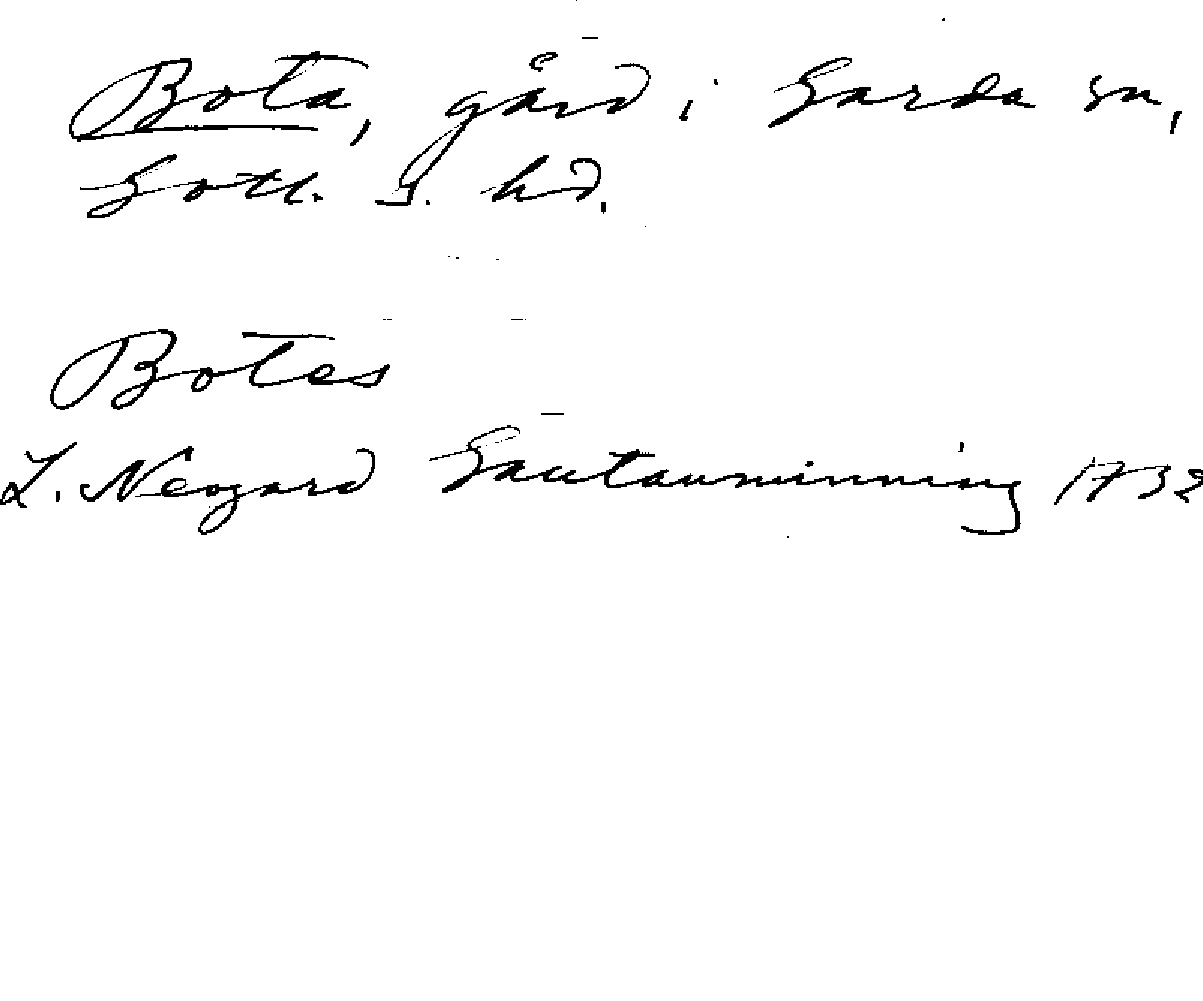 Bota, gård i Garda sn,
Gotl. S. hd.
Botes
L. Neogard Gautauminning 1732